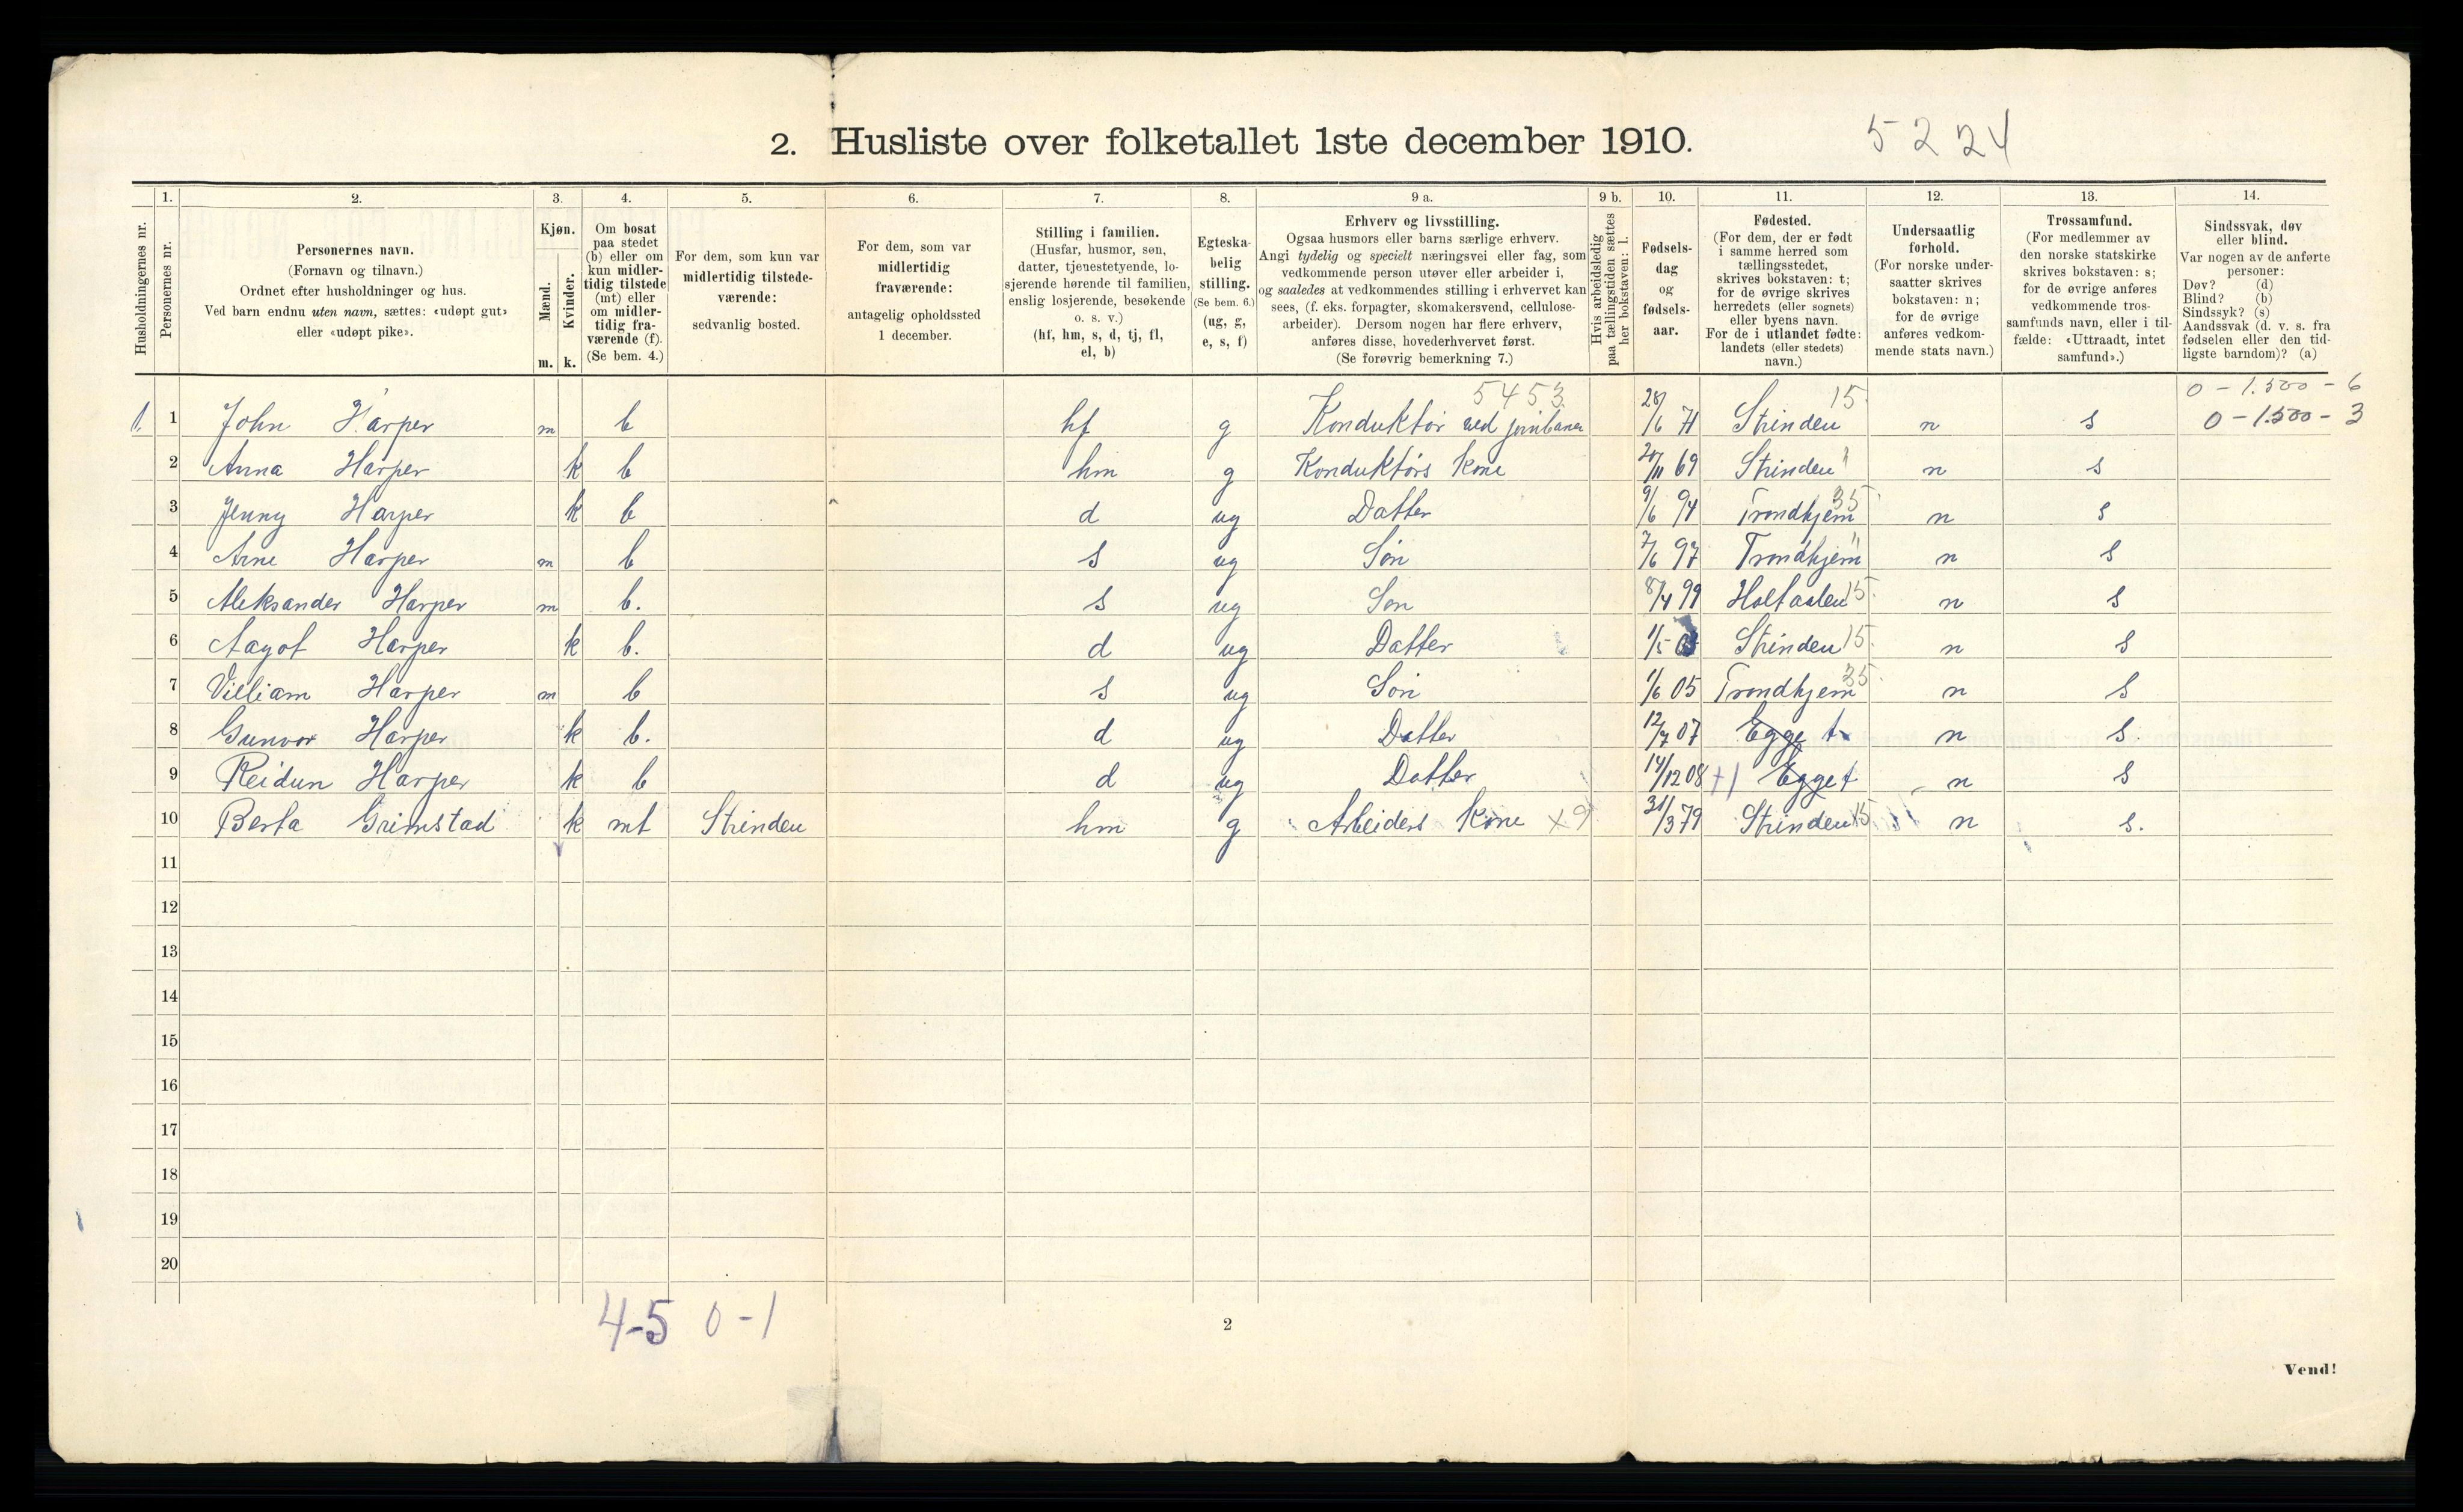 2. Husliste over folketallet 1ste december 1910.
5 2 24
Husholdningernes nr.
1.
Personernes nr.
2.
Personernes navn.
(Fornavn og tilnavn.)
Ordnet efter husholdninger og hus.
Ved barn endnu uten navn, sættes: «udøpt gut»
eller «udøpt pike».
3.
Kjøn.
Mænd.
Kvinder.
m. k.
4.
Om bosat
paa stedet
(b) eller om
kun midler-
tidig tilstede
(mt) eller
om midler-
tidig fra-
værende (f).
(Se bem. 4.)
5.
For dem, som kun var
midlertidig tilstede-
værende:
sedvanlig bosted.
6.
For dem, som var
midlertidig
fraværende:
antagelig opholdssted
1 december.
7.
Stilling i familien.
(Husfar, husmor, søn,
datter, tjenestetyende, lo-
sjerende hørende til familien,
enslig losjerende, besøkende
o. s. v.)
(hf, hm, s, d, tj, fl,
el, b)
8.
Egteska-
belig
stilling.
(Se bem. 6.)
(ug, g,
e, s, f)
9 a.
Erhverv og livsstilling.
Ogsaa husmors eller barns særlige erhverv.
Angi tydelig og specielt næringsvei eller fag, som
vedkommende person utøver eller arbeider i,
og saaledes at vedkommendes stilling i erhvervet kan
sees, (f. eks. forpagter, skomakersvend, cellulose-
arbeider). Dersom nogen har flere erhverv,
anføres disse, hovederhvervet først.
(Se forøvrig bemerkning 7.)
9 b.
Hvis arbeidsledig
paa tællingstiden sættes
her bokstaven: l.
10.
Fødsels-
dag
og
fødsels-
aar.
11.
Fødested.
(For dem, der er født
i samme herred som
tællingsstedet,
skrives bokstaven: t;
for de øvrige skrives
herredets (eller sognets)
eller byens navn.
For de i utlandet fødte:
landets (eller stedets)
navn.)
12.
Undersaatlig
forhold.
(For norske under-
saatter skrives
bokstaven: n;
for de øvrige
anføres vedkom-
mende stats navn.)
13.
Trossamfund.
(For medlemmer av
den norske statskirke
skrives bokstaven: s;
for de øvrige anføres
vedkommende tros-
samfunds navn, eller i til-
fælde: «Uttraadt, intet
samfund».)
14.
Sindssvak, døv
eller blind.
Var nogen av de anførte
personer:
Døv? (d)
Blind? (b)
Sindssyk? (s)
Aandssvak (d. v. s. fra
fødselen eller den tid-
ligste barndom)? (a)
5453 15 0 - 1.500 - 6
1. 1 John Harper m b hf g Konduktør ved jernbanen 28/6 71 Strinden n s 0 - 1.500 - 3
2 Anna Harper k b hm g Konduktørs kone 20/11 69 Strinden " n s
3 Jenny Harper k b d ug Datter 9/6 94 Trondhjem 35 n s
4 Arne Harper m b s ug Søn 7/6 97 Trondhjem " n s
5 Aleksander Harper m b. s ug Søn 8/4 99 Holtaalen 15. n s
6 Aagot Harper k b. d ug Datter 1/5 Strinden 15. n s
7 Villiam Harper m b s ug Søn 1/6 05 Trondhjem 35. n s
8 Gunvor Harper k b. d ug Datter 12/7 07 Egge t n s.
9 Reidun Harper k b d ug Datter 14/12 08 +1 Egge t n s
10 Berta Grimstad k mt Strinden hm g Arbeiders kone x9 31/3 79 Strinden 15 n s.
11
12
13
14
15
16
17
18
19
20
4-5 0-1
2
Vend!